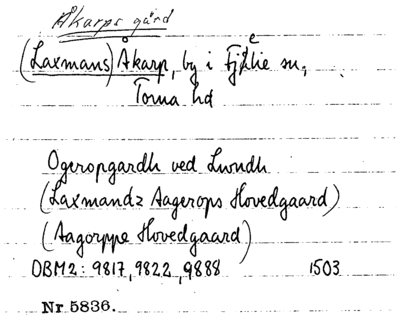 Åkarps gård
(Laxmans) Åkarp, by i Fjelie sn,
Torna hd
Ogeropgardh ved Lwndh
(Laxmandz Aagerops Hovedgaard)
(Aagorppe Hovedgaard)
DBM2: 9817, 9822, 9888 1503
Nr 5836.